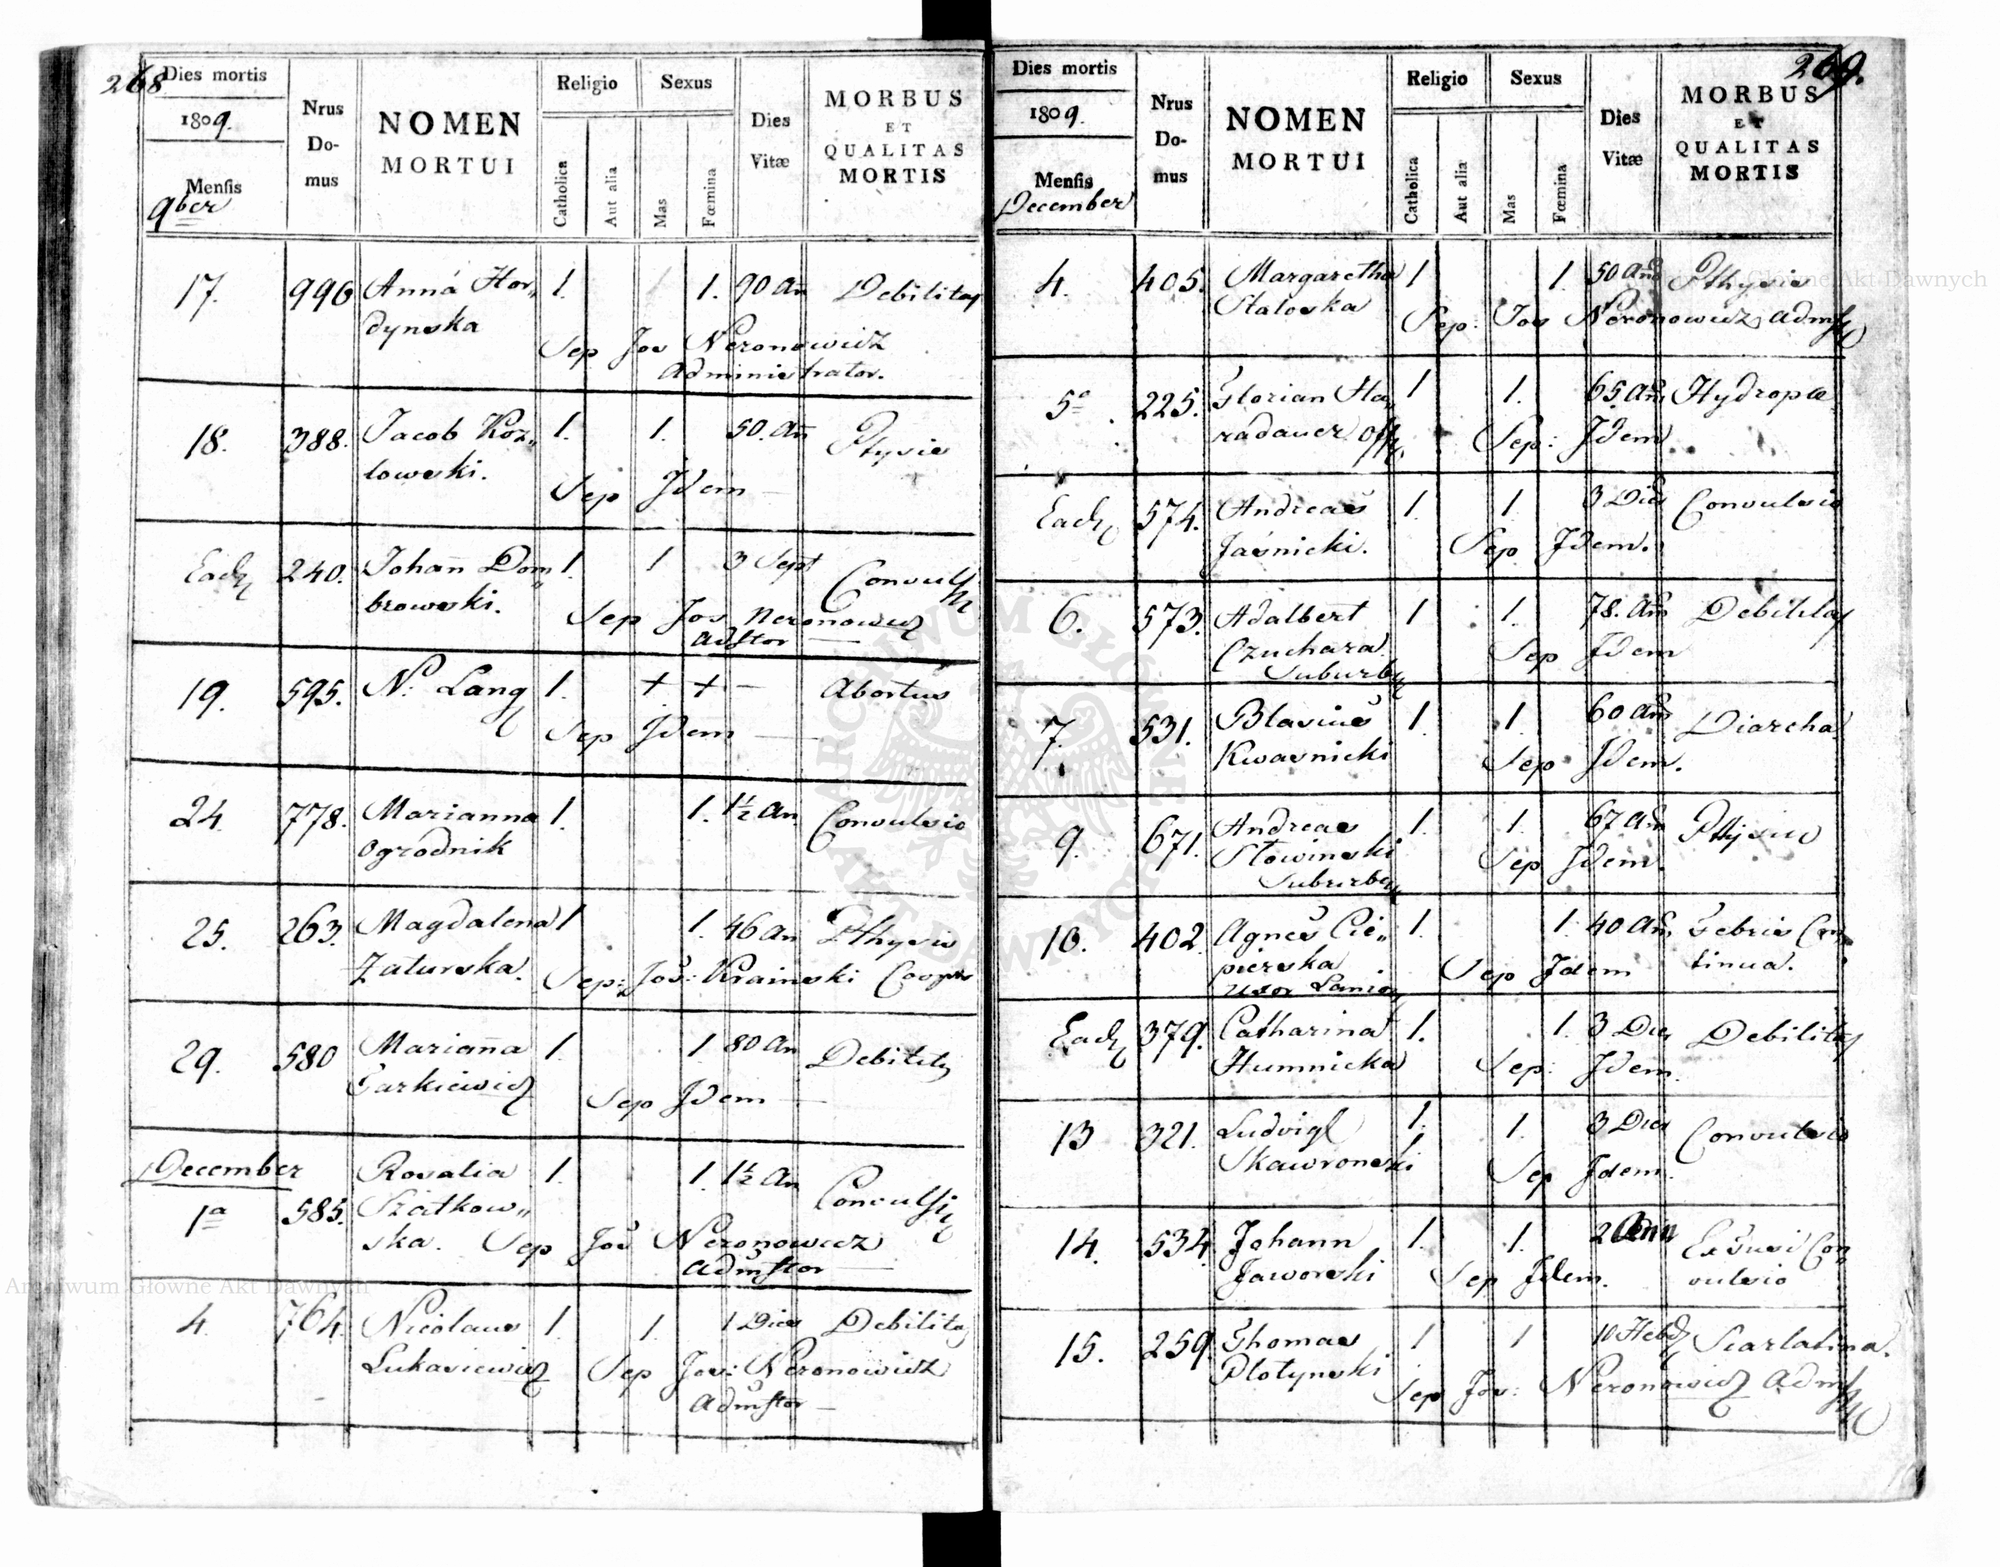 268
Dies mortis
1809.
Mensis
9ber
Nrus
Do-
mus
NOMEN
MORTUI
Religio
Catholica
Aut alia
Sexus
Mas
Fœmina
Dies
Vitæ
MORBUS
ET
QUALITAS
MORTIS
17. 990 Anna Hor„ 1. 1. 90 An Debilitas
dynska
Sep Jos Neronowicz
Administrator.
18. 388. Jacob Koz„ 1. 1. 50. An Ptysis
lowski.
Sep Idem
Ead 240. Johan̄ Dom„ 1. 1 3 Sept Convuls
browski.
Sep Jos Neronowicz
Adstor
19. 595. N. Lang 1. + + Abortus
Sep Idem
24. 778. Marianna 1. 1. 1½ An. Convulsio
Ogrodnik
25. 263. Magdalena 1 1. 46 An Pthysis
Zaturska.
Sep: Jos: Krainski Coops
29. 580 Marian̄a 1. 1. 80 An Debilits
Carkiewicz
Sep Idem
December
1a 585. Rosalia 1. 1. 1½ An Convulsi
Szatkow„
ska. Sep Jos Neronowicz
Admstor
4. 764. Nicolaus 1. 1. 1 Dies Debilitas
Lukasiewicz
Sep Jos: Neronowicz
Admstor
269.
Dies mortis
1809.
Mensis
December
Nrus
Do-
mus
NOMEN
MORTUI
Religio
Catholica
Aut alia
Sexus
Mas
Fœmina
Dies
Vitæ
MORBUS
ET
QUALITAS
MORTIS
4. 405. Margaretha 1 1. 50 An Pthysis
Staloska
Sep: Jos Neronowicz Adm
5a 225. Florian Ha„ 1 1. 65 An Hydrops
radauer
Sep: Idem
Ead 574. Andreas 1. 1. 3 Dies Convulsio
Jasnicki.
Sep Idem.
6. 573. Adalbert 1 1. 78. An Debilitas
Czuchara
Suburb
Sep Idem
7. 531. Blasius 1 1. 60 An Diarrha
Kwasnicki
Sep Idem.
9. 671. Andreas 1. 1. 67 An Pthysis
Słowinski
Suburb
Sep Idem.
10. 402 Agnes Cie„ 1. 1. 40 An. Febris Con„
pierska tinua.
Uxor
Sep Idem
Ead 379. Catharina 1. 1. 3 Dies Debilitas
Humnicka
Sep: Idem.
13 321. Ludvig 1. 1. 3 Dies Convulsio
Skawronski
Sep Idem.
14. 534. Johann 1. 1. 2 Ann Con„
Jaworski vulsio
Sep Idem.
15. 259. Thomas 1 1 10 Hebd Scarlatina.
Plotynski
Sep Jos: Neronowicz Adm
Archiwum Główne Akt Dawnych
ARCHIWUM GŁÓWNE AKT DAWNYCH
Archiwum Główne Akt Dawnych